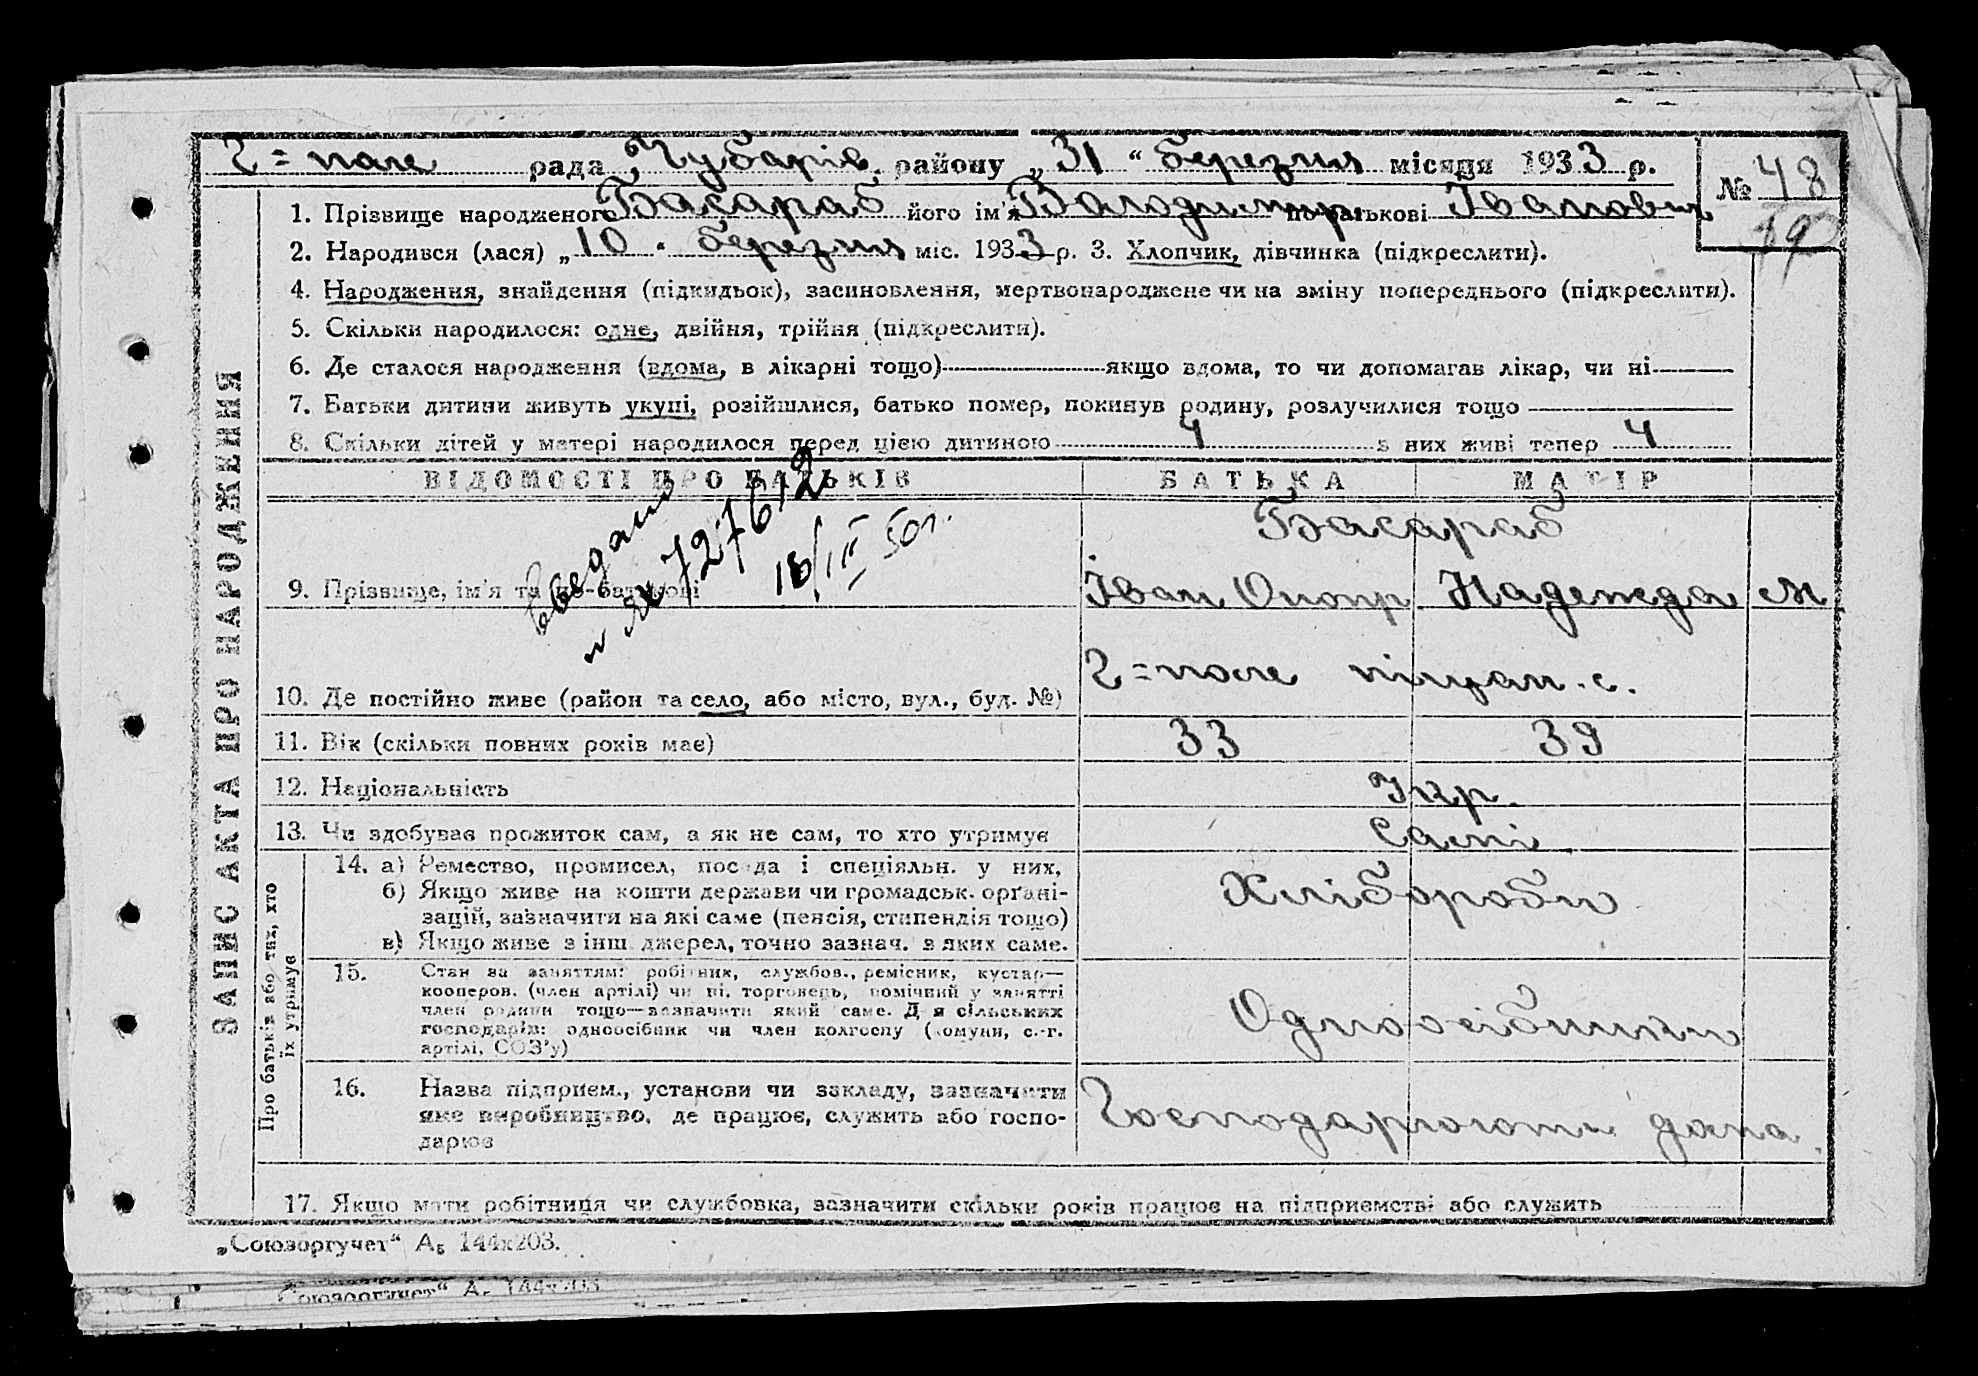 Г=поле рада Чубарів. району „31“ березня місяця 1933 р.
№ 48
19
1. Прізвище народженого Басараб його ім'я Володимир по батькові Іванович
2. Народився (лася) „10“ березня міс. 1933 р. 3. Хлопчик, дівчинка (підкреслити).
4. Народження, знайдення (підкидьок), засиновлення, мертвонароджене чи на зміну попереднього (підкреслити).
5. Скільки народилося: одне, двійня, трійня (підкреслити).
6. Де сталося народження (вдома, в лікарні тощо) якщо вдома, то чи допомагав лікар, чи ні
7. Батьки дитини живуть укупі, розійшлися, батько помер, покинув родину, розлучилися тощо
8. Скільки дітей у матері народилося перед цією дитиною 4 з них живі тепер 4
ВІДОМОСТІ ПРО БАТЬКІВ БАТЬКА МАТІР
Басараб
727612
18/III 50г.
9. Прізвище, ім'я та по-батькові Іван Оноп Надежда М
Г=поле піщан. с.
10. Де постійно живе (район та село, або місто, вул., буд. №)
11. Вік (скільки повних років має) 33 39
12. Національність Укр.
13. Чи здобуває прожиток сам, а як не сам, то хто утримує Самі
14. а) Ремество, промисел, посада і спеціяльн. у них,
б) Якщо живе на кошти держави чи громадськ. орґані-
зацій, зазначити на які саме (пенсія, стипендія тощо)
в) Якщо живе з інш. джерел, точно зазнач. з яких саме.
Хлібороби
15. Стан за заняттям: робітник, службов., ремісник, кустар—
кооперов. (член артілі) чи ні, торговець, помічний у занятті
член родини тощо—зазначити який саме. Для сільських
господарів: одноосібник чи член колгоспу (комуни, с.-г.
артілі, СОЗ'у)
Одноосібники
16. Назва підприєм., установи чи закладу, зазначити
яке виробництво, де працює, служить або госпо-
дарює
Господарюють дома
17. Якщо мати робітниця чи службовка, зазначити скільки років працює на підприємстві або служить
ЗАПИС АКТА ПРО НАРОДЖЕННЯ
Про батьків або тих, хто
їх утримує
„Союзоргучет“ А5 144х203.
„Союзоргучет“ А5 144х203